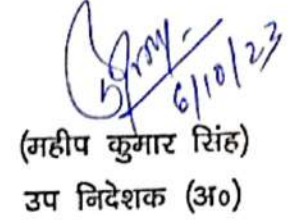 6/10/23
(महीप कुमार सिंह)
उप निदेशक (अ०)